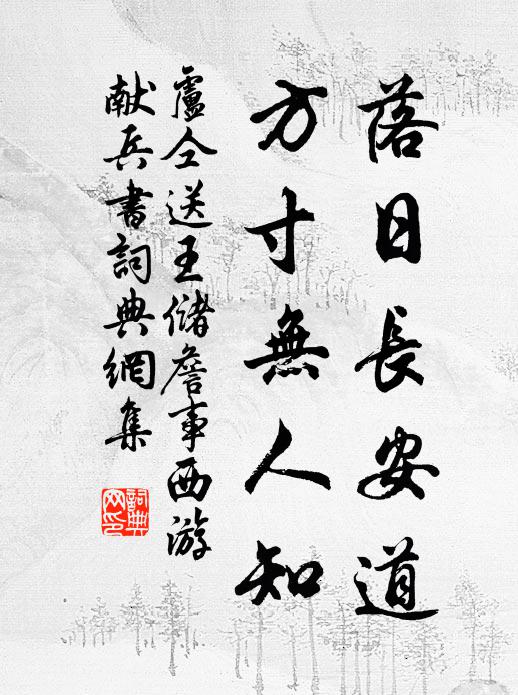 落日長安道
方寸無人知
盧仝送王儲詹事西游
献兵書詞典網集